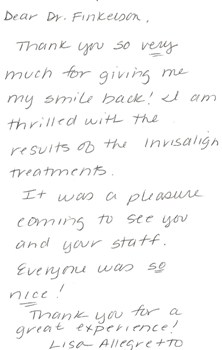 Dear Dr. Finkelson,
Thank you so very
much for giving me
my smile back! I am
thrilled with the
results of the Invisalign
treatments.
It was a pleasure
coming to see you
and your staff.
Everyone was so
nice!
Thank you for a
great experience!
Lisa Allegretto